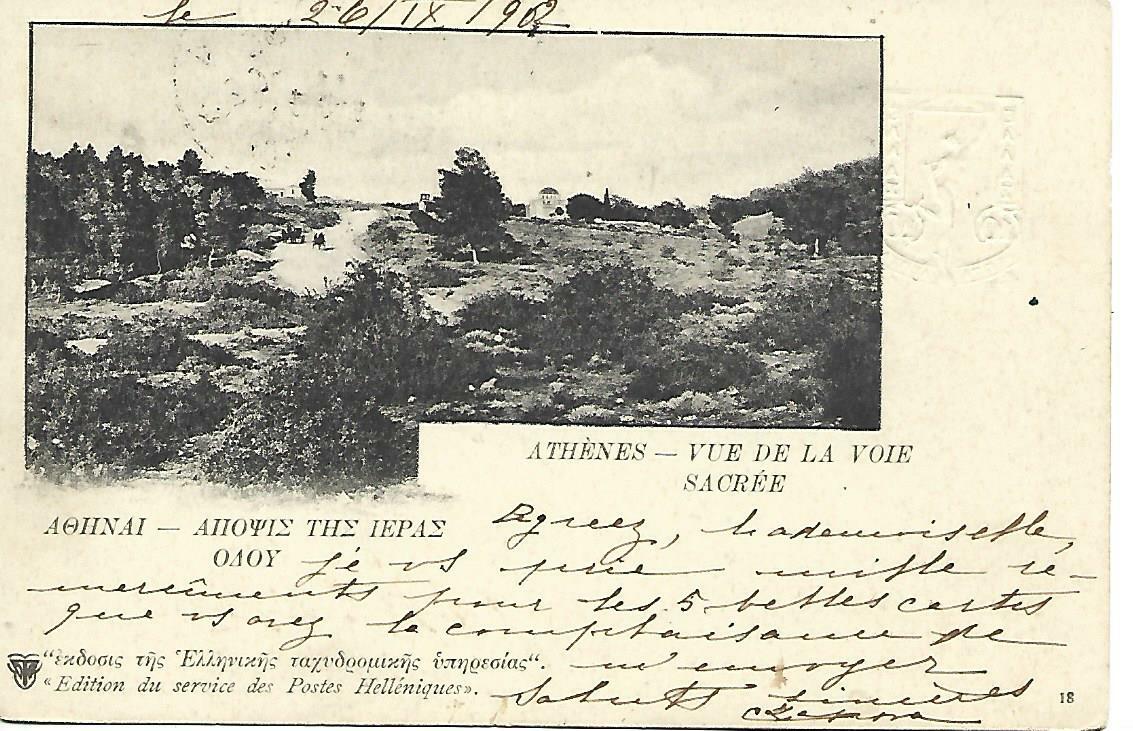 le 26/IX/902
ATHÈNES — VUE DE LA VOIE
SACRÉE
ΑΘΗΝΑΙ — ΑΠΟΨΙΣ ΤΗΣ ΙΕΡΑΣ
ΟΔΟΥ
Agreez, Mademoiselle,
je vs prie mille re-
merciments pour les 5 belles cartes
que vs avez la complaisance de
m'envoyer
Saluts sincères
"ἔκδοσις τῆς Ἑλληνικῆς ταχυδρομικῆς ὑπηρεσίας".
«Edition du service des Postes Helléniques».
18